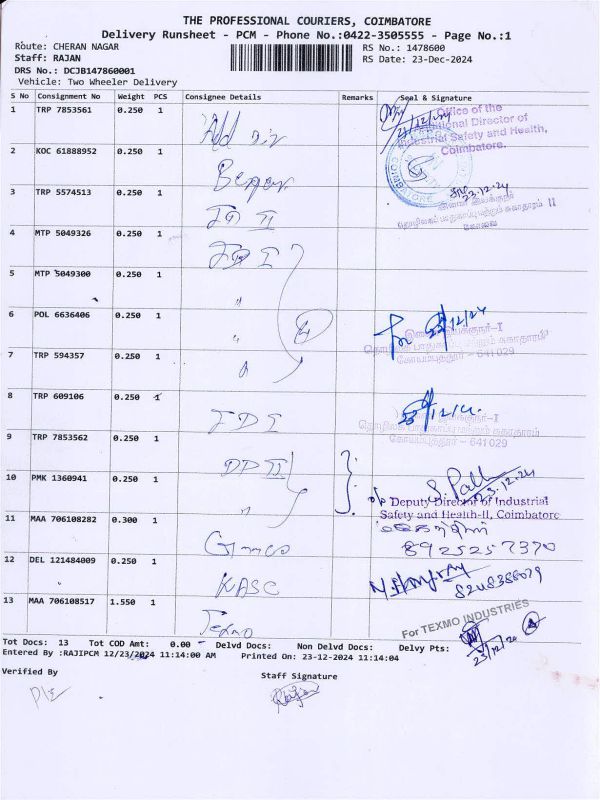 THE PROFESSIONAL COURIERS, COIMBATORE
Delivery Runsheet - PCM - Phone No.:0422-3505555 - Page No.:1
Route: CHERAN NAGAR RS No.: 1478600
Staff: RAJAN RS Date: 23-Dec-2024
DRS No.: DCJB147860001
Vehicle: Two Wheeler Delivery
S No Consignment No Weight PCS Consignee Details Remarks Seal & Signature
1 TRP 7853561 0.250 1 Add Dir 23/12/24
Office of the
Additional Director of
Industrial Safety and Health,
Coimbatore.
2 KOC 61888952 0.250 1
COIMBATORE
3 TRP 5574513 0.250 1 JD II 23.12.24
இணை இயக்குநர்
தொழிலகப் பாதுகாப்பு மற்றும் சுகாதாரம் II
கோவை
4 MTP 5049326 0.250 1 JD I
5 MTP 5049300 0.250 1 "
6 POL 6636406 0.250 1 " 4 for 23/12/24
இணை இயக்குநர்-I
தொழிலகப் பாதுகாப்பு மற்றும் சுகாதாரம்
கோயம்புத்தூர் - 641 029
7 TRP 594357 0.250 1 "
8 TRP 609106 0.250 1 JD I 23/12/24
இணை இயக்குநர்-I
தொழிலகப் பாதுகாப்பு மற்றும் சுகாதாரம்
கோயம்புத்தூர் - 641029
9 TRP 7853562 0.250 1 DD II
10 PMK 1360941 0.250 1 " 23.12.24
Deputy Director of Industrial
Safety and Health-II, Coimbatore
11 MAA 706108282 0.300 1 8925257370
12 DEL 121484009 0.250 1 KASC 8248386079
13 MAA 706108517 1.550 1 Texmo
For TEXMO INDUSTRIES
23/12/24
Tot Docs: 13 Tot COD Amt: 0.00 Delvd Docs: Non Delvd Docs: Delvy Pts:
Entered By :RAJIPCM 12/23/2024 11:14:00 AM Printed On: 23-12-2024 11:14:04
Verified By Staff Signature